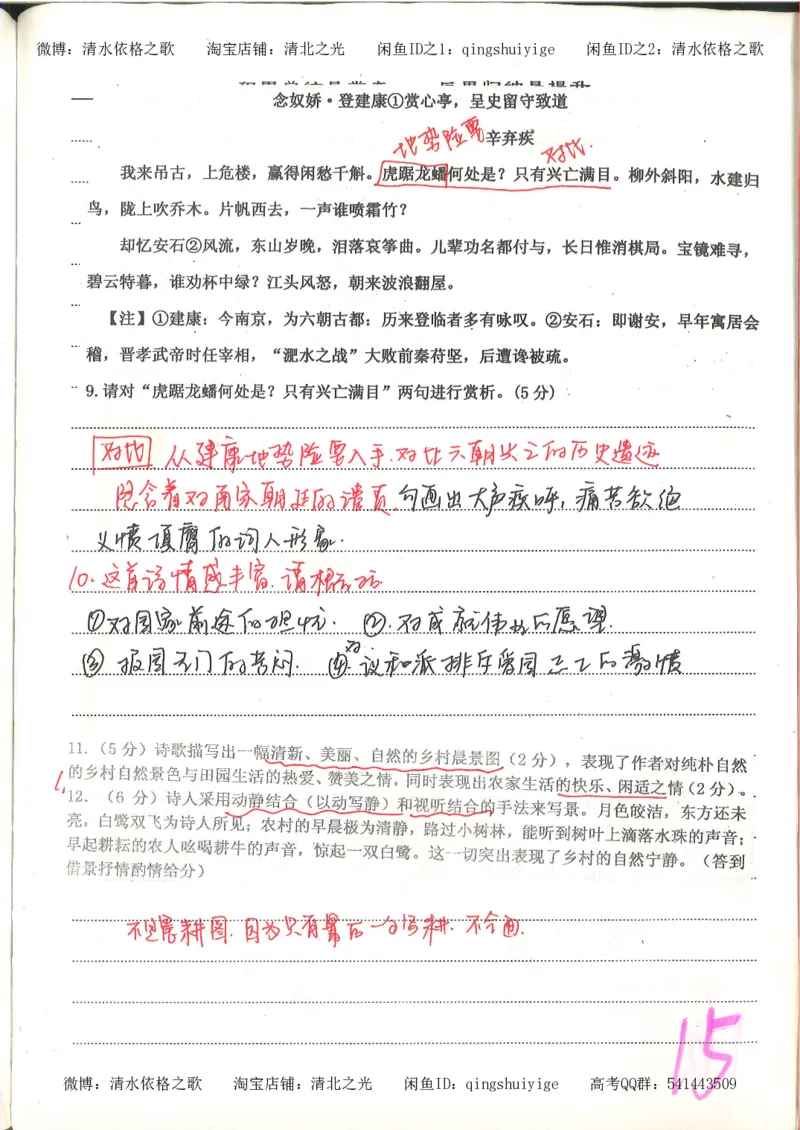 微博：清水依格之歌 淘宝店铺：清北之光 闲鱼ID之1：qingshuiyige 闲鱼ID之2：清水依格之歌
念奴娇·登建康①赏心亭，呈史留守致道
地势险要
辛弃疾
对比.
我来吊古，上危楼，赢得闲愁千斛。虎踞龙蟠何处是？只有兴亡满目。柳外斜阳，水建归
鸟，陇上吹乔木。片帆西去，一声谁喷霜竹？
却忆安石②风流，东山岁晚，泪落哀筝曲。儿辈功名都付与，长日惟消棋局。宝镜难寻，
碧云特暮，谁劝杯中绿？江头风怒，朝来波浪翻屋。
【注】①建康：今南京，为六朝古都：历来登临者多有咏叹。②安石：即谢安，早年寓居会
稽，晋孝武帝时任宰相，“淝水之战”大败前秦苻坚，后遭谗被疏。
9.请对“虎踞龙蟠何处是？只有兴亡满目”两句进行赏析。(5分)
对比 从建康地势险要入手.对比六朝出之的历史遗迹
隐含着对南宋朝廷的谴责.勾画出大声疾呼，痛苦欲绝
义愤填膺的词人形象.
10.这首词情感丰富.请概括
①对国家前途的担忧. ②.对成就伟业的愿望.
③报国无门的苦闷. ④对议和派排斥爱国志士的激愤
11.（5分）诗歌描写出一幅清新、美丽、自然的乡村晨景图（2分），表现了作者对纯朴自然
的乡村自然景色与田园生活的热爱、赞美之情，同时表现出农家生活的快乐、闲适之情(2分)。
12.（6 分）诗人采用动静结合（以动写静）和视听结合的手法来写景。月色皎洁，东方还未
亮，白鹭双飞为诗人所见；农村的早晨极为清静，路过小树林，能听到树叶上滴落水珠的声音；
早起耕耘的农人吆喝耕牛的声音，惊起一双白鹭。这一切突出表现了乡村的自然宁静。（答到
借景抒情酌情给分）
不是晨耕图.因为只有最后一句写耕.不全面.
15
微博：清水依格之歌 淘宝店铺：清北之光 闲鱼ID：qingshuiyige 高考QQ群：541443509